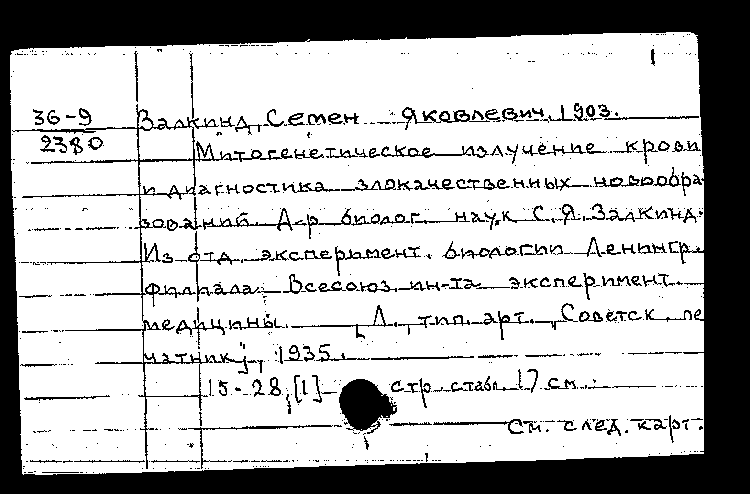 1
36-9
2380
Залкинд, Семен Яковлевич, 1903.
Митогенетическое излучение крови
и диагностика злокачественных новообра-
зований. Д-р биолог. наук С. Я. Залкинд.
Из отд. эксперимент. биологии Ленингр.
филиала Всесоюз. ин-та эксперимент.
медицины. Л., тип. арт. "Советск. пе
чатник", 1935.
15-28, [1] стр. с табл. 17 см.
См. след. карт.